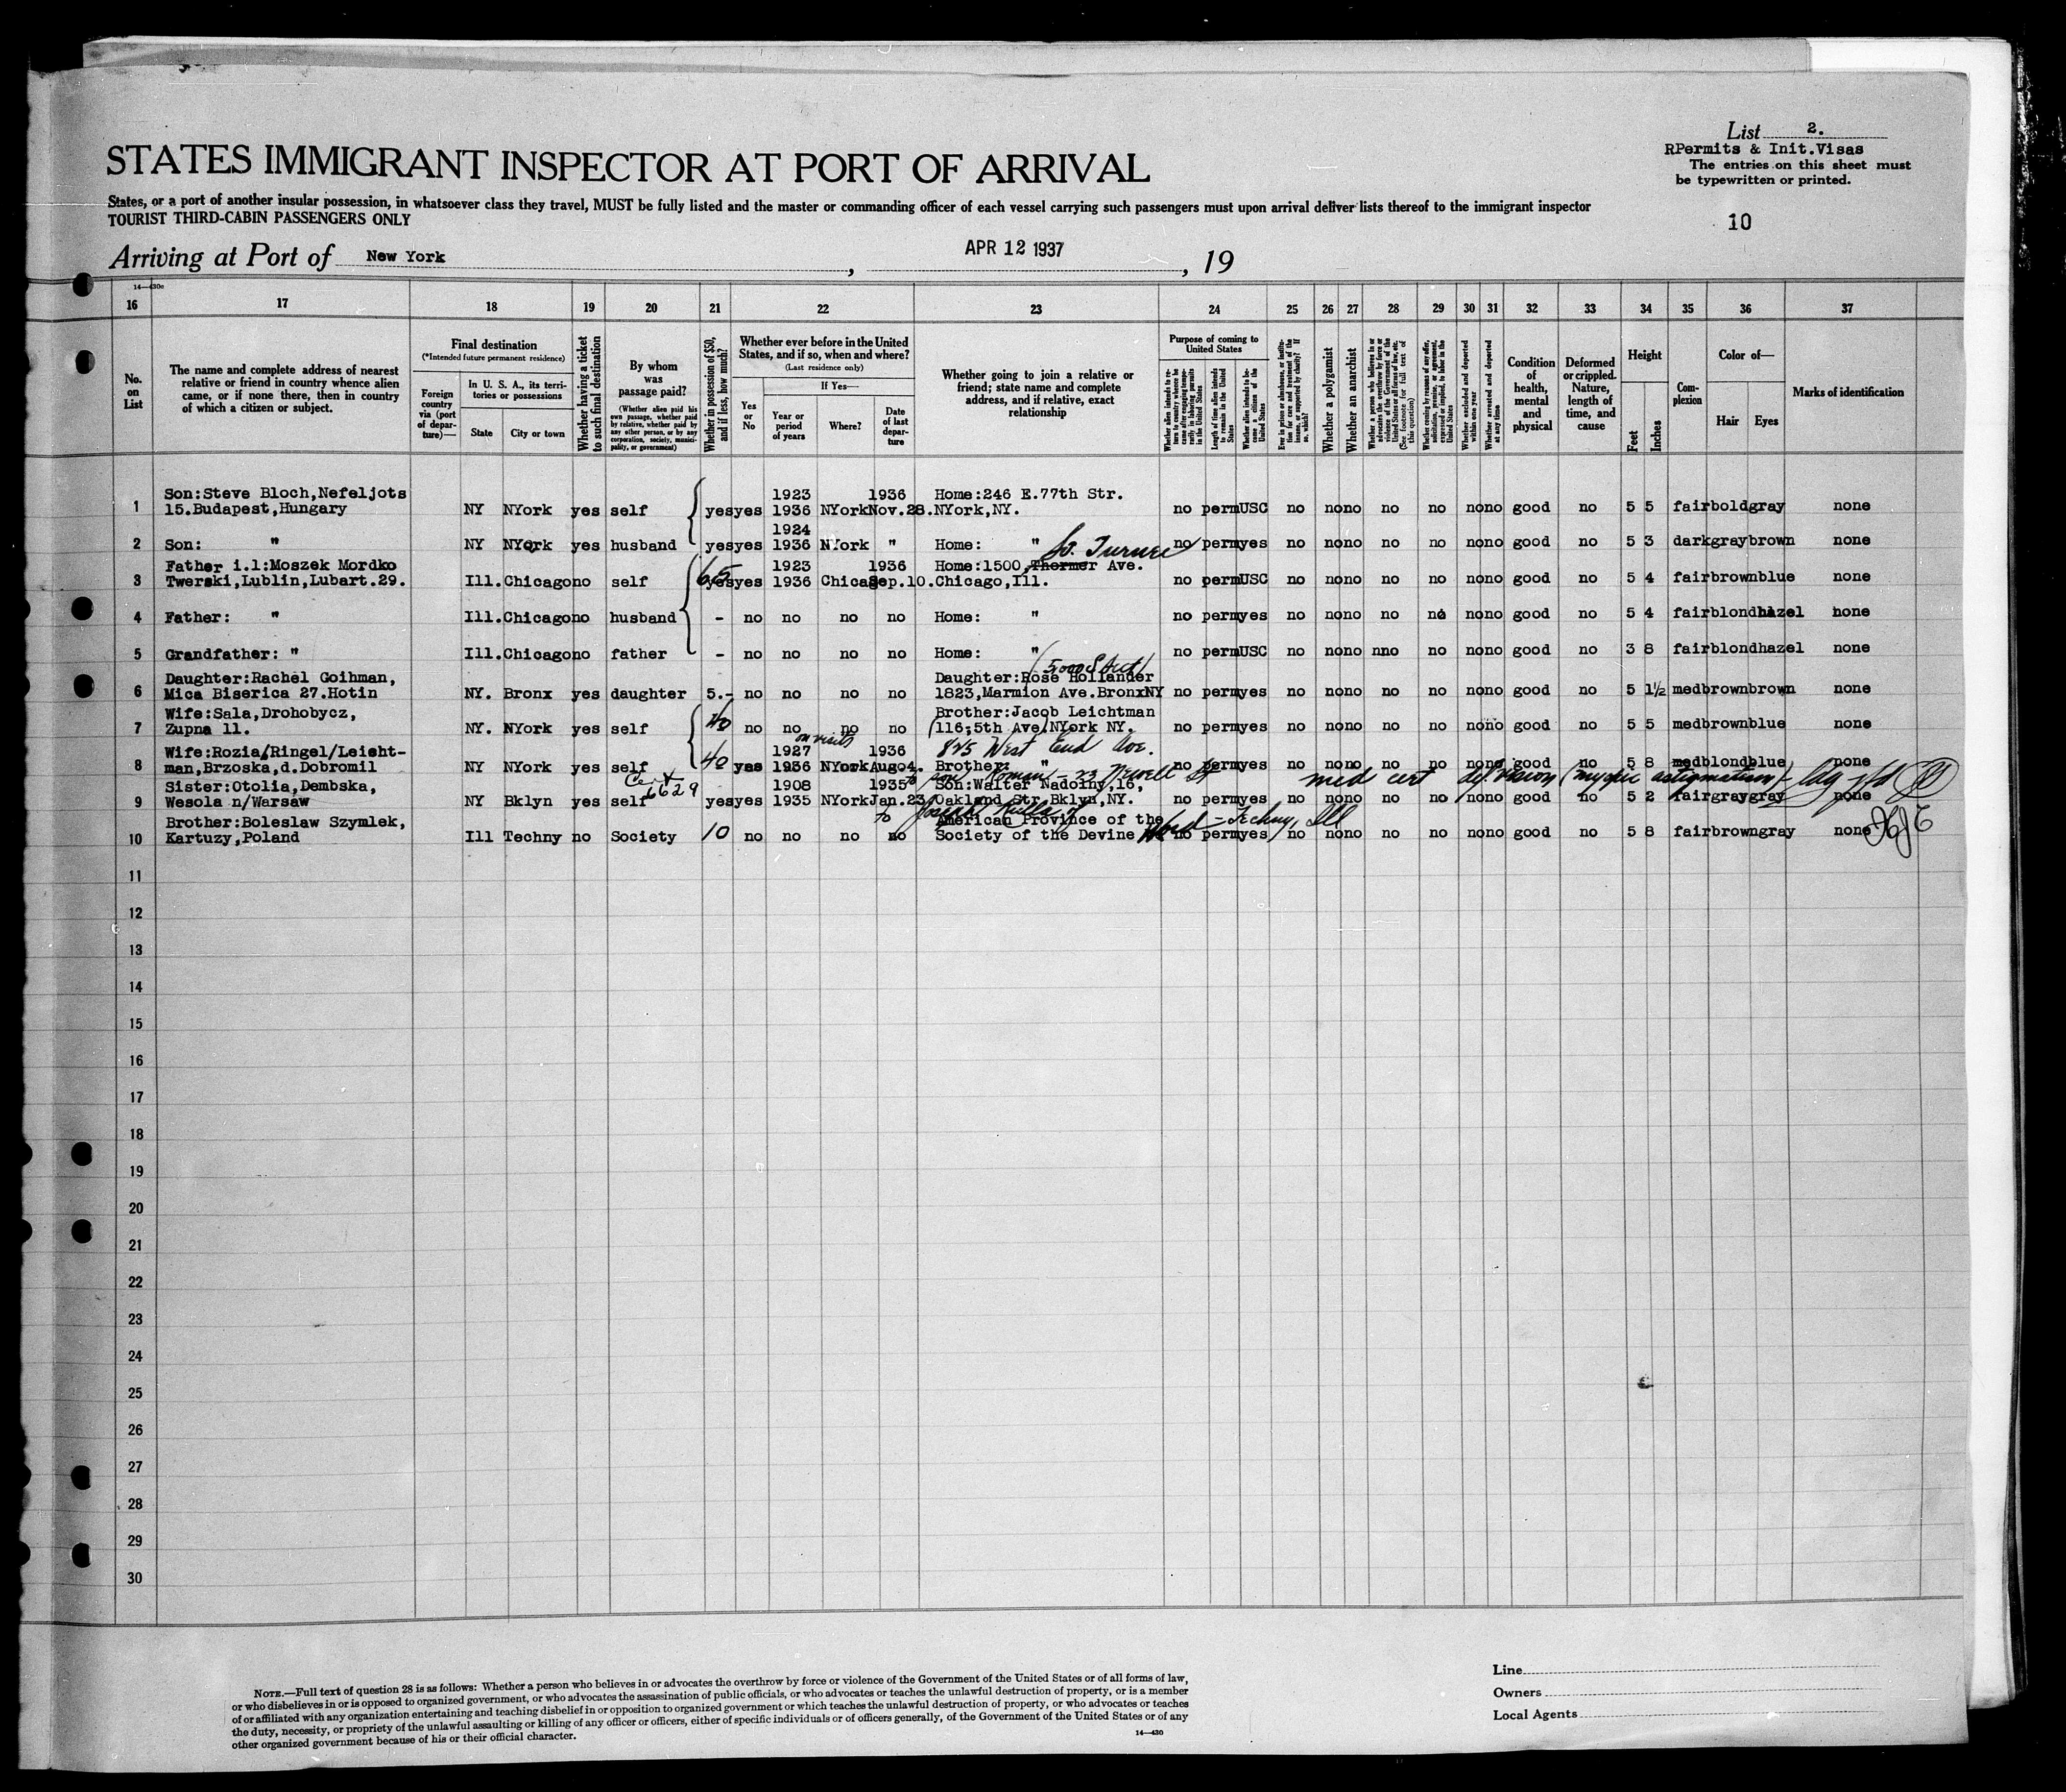 List 2.
RPermits & Init.Visas
The entries on this sheet must
be typewritten or printed.
STATES IMMIGRANT INSPECTOR AT PORT OF ARRIVAL
States, or a port of another insular possession, in whatsoever class they travel, MUST be fully listed and the master or commanding officer of each vessel carrying such passengers must upon arrival deliver lists thereof to the immigrant inspector
TOURIST THIRD-CABIN PASSENGERS ONLY
10
Arriving at Port of New York, APR 12 1937, 19
16 17 18 19 20 21 22 23 24 25 26 27 28 29 30 31 32 33 34 35 36 37
No. on List
The name and complete address of nearest
relative or friend in country whence alien
came, or if none there, then in country
of which a citizen or subject.
Final destination
(*Intended future permanent residence)
Foreign country via (port of departure)—
In U. S. A., its territories or possessions
State
City or town
Whether having a ticket to such final destination
By whom was passage paid?
(Whether alien paid his own passage, whether paid by relative, whether paid by any other person, or by any corporation, society, municipality, or government)
Whether in possession of $50, and if less, how much?
Whether ever before in the United
States, and if so, when and where?
(Last residence only)
Yes or No
If Yes—
Year or period of years
Where?
Date of last departure
Whether going to join a relative or
friend; state name and complete
address, and if relative, exact
relationship
Purpose of coming to United States
Length of time alien intends to remain in the United States
Whether alien intends to become a citizen of the United States
Whether a polygamist
Whether an anarchist
Whether excluded and deported within one year
Whether arrested and deported at any time
Condition of health, mental and physical
Deformed or crippled. Nature, length of time, and cause
Height
Feet
Inches
Complexion
Color of—
Hair
Eyes
Marks of identification
Son:Steve Bloch,Nefeljots 1923 1936 Home:246 E.77th Str.
1 15.Budapest,Hungary NY NYork yes self yes yes 1936 NYork Nov.28. NYork,NY. no perm USC no no no no no no no good no 5 5 fair bold gray none
1924
2 Son: " NY NYork yes husband yes yes 1936 NYork " Home: " no perm yes no no no no no no no good no 5 3 dark gray brown none
So. Turner
Father i.l:Moszek Mordko 1923 1936 Home:1500,Thormer Ave.
3 Twerski,Lublin,Lubart.29. Ill. Chicago no self 65 yes yes 1936 Chicago Sep.10. Chicago,Ill. no perm USC no no no no no no no good no 5 4 fair brown blue none
4 Father: " Ill. Chicago no husband - no no no no Home: " no perm yes no no no no no no no good no 5 4 fair blond hazel none
5 Grandfather: " Ill. Chicago no father - no no no no Home: " no perm USC no no no nno no no no good no 3 8 fair blond hazel none
Daughter:Rachel Goihman, Daughter:Rose Hollander
6 Mica Biserica 27.Hotin NY. Bronx yes daughter 5.- no no no no 1823,Marmion Ave.BronxNY no perm yes no no no no no no no good no 5 1½ med brown brown none
Wife:Sala,Drohobycz, Brother:Jacob Leichtman
7 Zupna 11. NY. NYork yes self 40 no no no no (116,5th Ave)NYork NY. no perm yes no no no no no no no good no 5 5 med brown blue none
on visits
845 West End Ave.
Wife:Rozia/Ringel/Leicht- 1927 1936
8 man,Brzoska,d.Dobromil NY NYork yes self 40 yes 1936 NYork Aug04. Brother: " no perm yes no no no no no no no good no 5 8 med blond blue none
Cert 6629
med cert def vision (myopic astigmatism)
Sister:Otolia,Dembska, 1908 1935 Son:Walter Nadolny,16,
9 Wesola n/Warsaw NY Bklyn yes self yes yes 1935 NYork Jan.23 Oakland Str.Bklyn,NY. no perm yes no no no no no no no good no 5 2 fair gray gray none
Brother:Boleslaw Szymlek, American Province of the
10 Kartuzy,Poland Ill Techny no Society 10 no no no no Society of the Devine Word - Techny, Ill no perm yes no no no no no no no good no 5 8 fair brown gray none
11
12
13
14
15
16
17
18
19
20
21
22
23
24
25
26
27
28
29
30
NOTE.—Full text of question 28 is as follows: Whether a person who believes in or advocates the overthrow by force or violence of the Government of the United States or of all forms of law,
or who disbelieves in or is opposed to organized government, or who advocates the assassination of public officials, or who advocates or teaches the unlawful destruction of property, or is a member
of or affiliated with any organization entertaining and teaching disbelief in or opposition to organized government or which teaches the unlawful destruction of property, or who advocates or teaches
the duty, necessity, or propriety of the unlawful assaulting or killing of any officer or officers, either of specific individuals or of officers generally, of the Government of the United States or of any
other organized government because of his or their official character.
14—430
Line
Owners
Local Agents